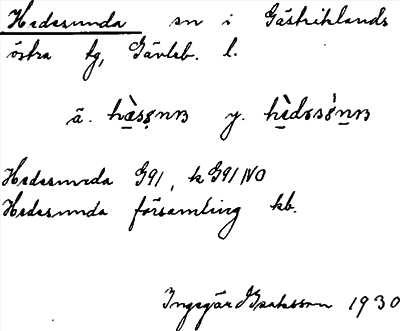 Hedesunda sn i Gästriklands
östra tg, Gävleb. l.
ä. hæ̀sƍnʙ y. hèdɤsɤ́nʙ
Hedesunda G91, k G91 NO
Hedesunda församling kb.
Ingegär Isaksson 1930